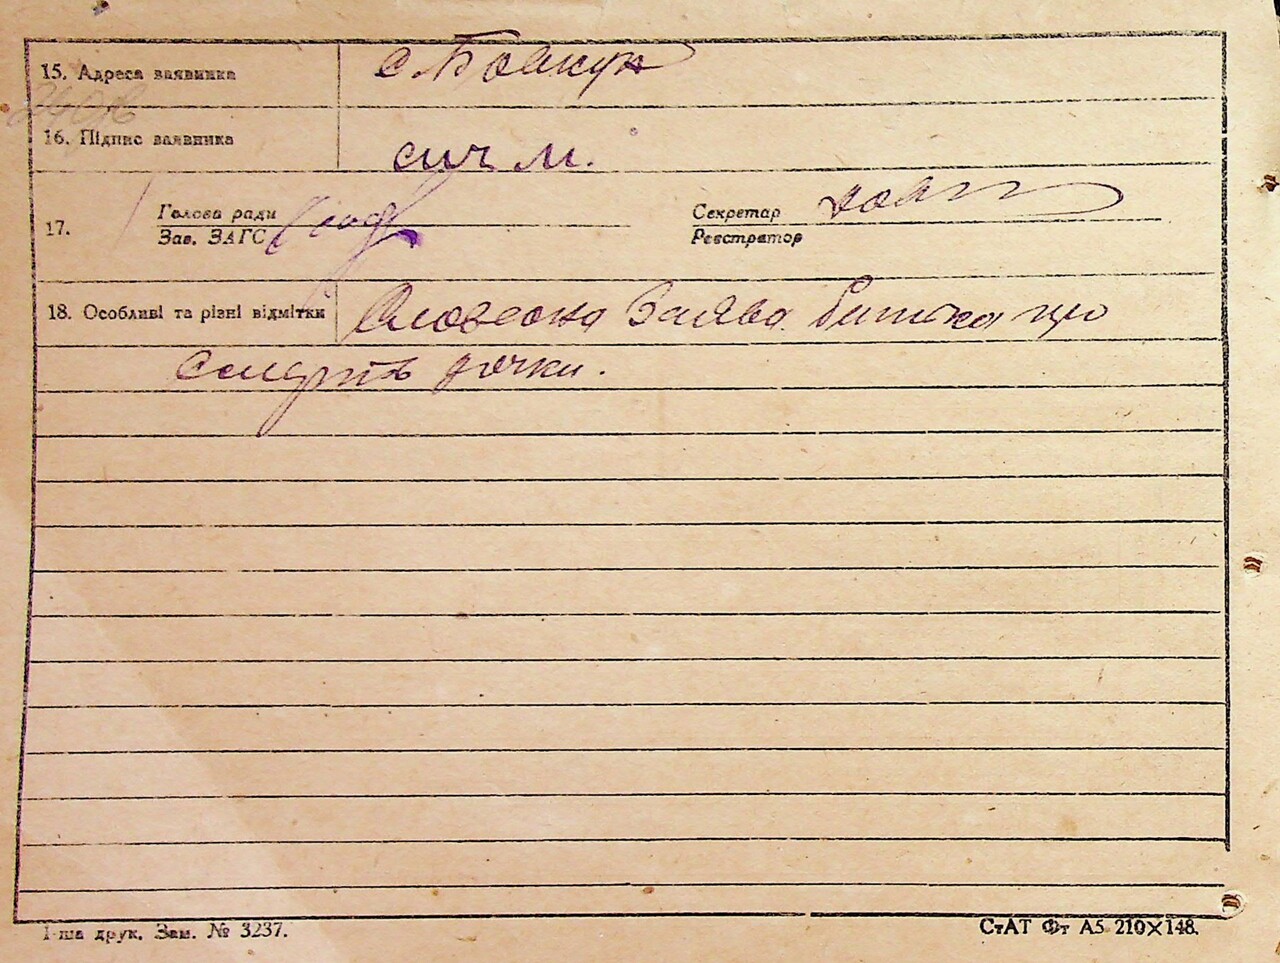 15. Адреса заявника с. Баскун
16. Підпис заявника сич м.
17. Голова ради Секретар
Зав. ЗАГС Реєстратор
18. Особливі та різні відмітки Словесна Заява батька про
смерть дочки.
1-ша друк. Зам. № 3237. СтАТ Фт А5 210×148.